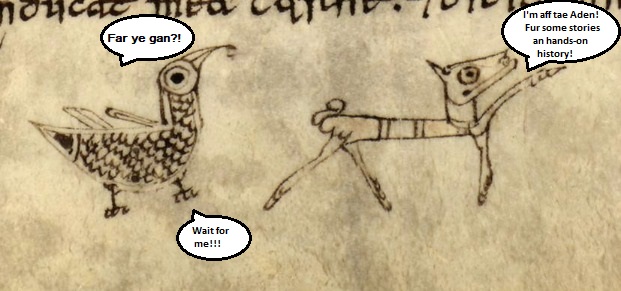 nducat mea
Far ye gan?!
I'm aff tae Aden!
Fur some stories
an hands-on
history!
Wait for
me!!!